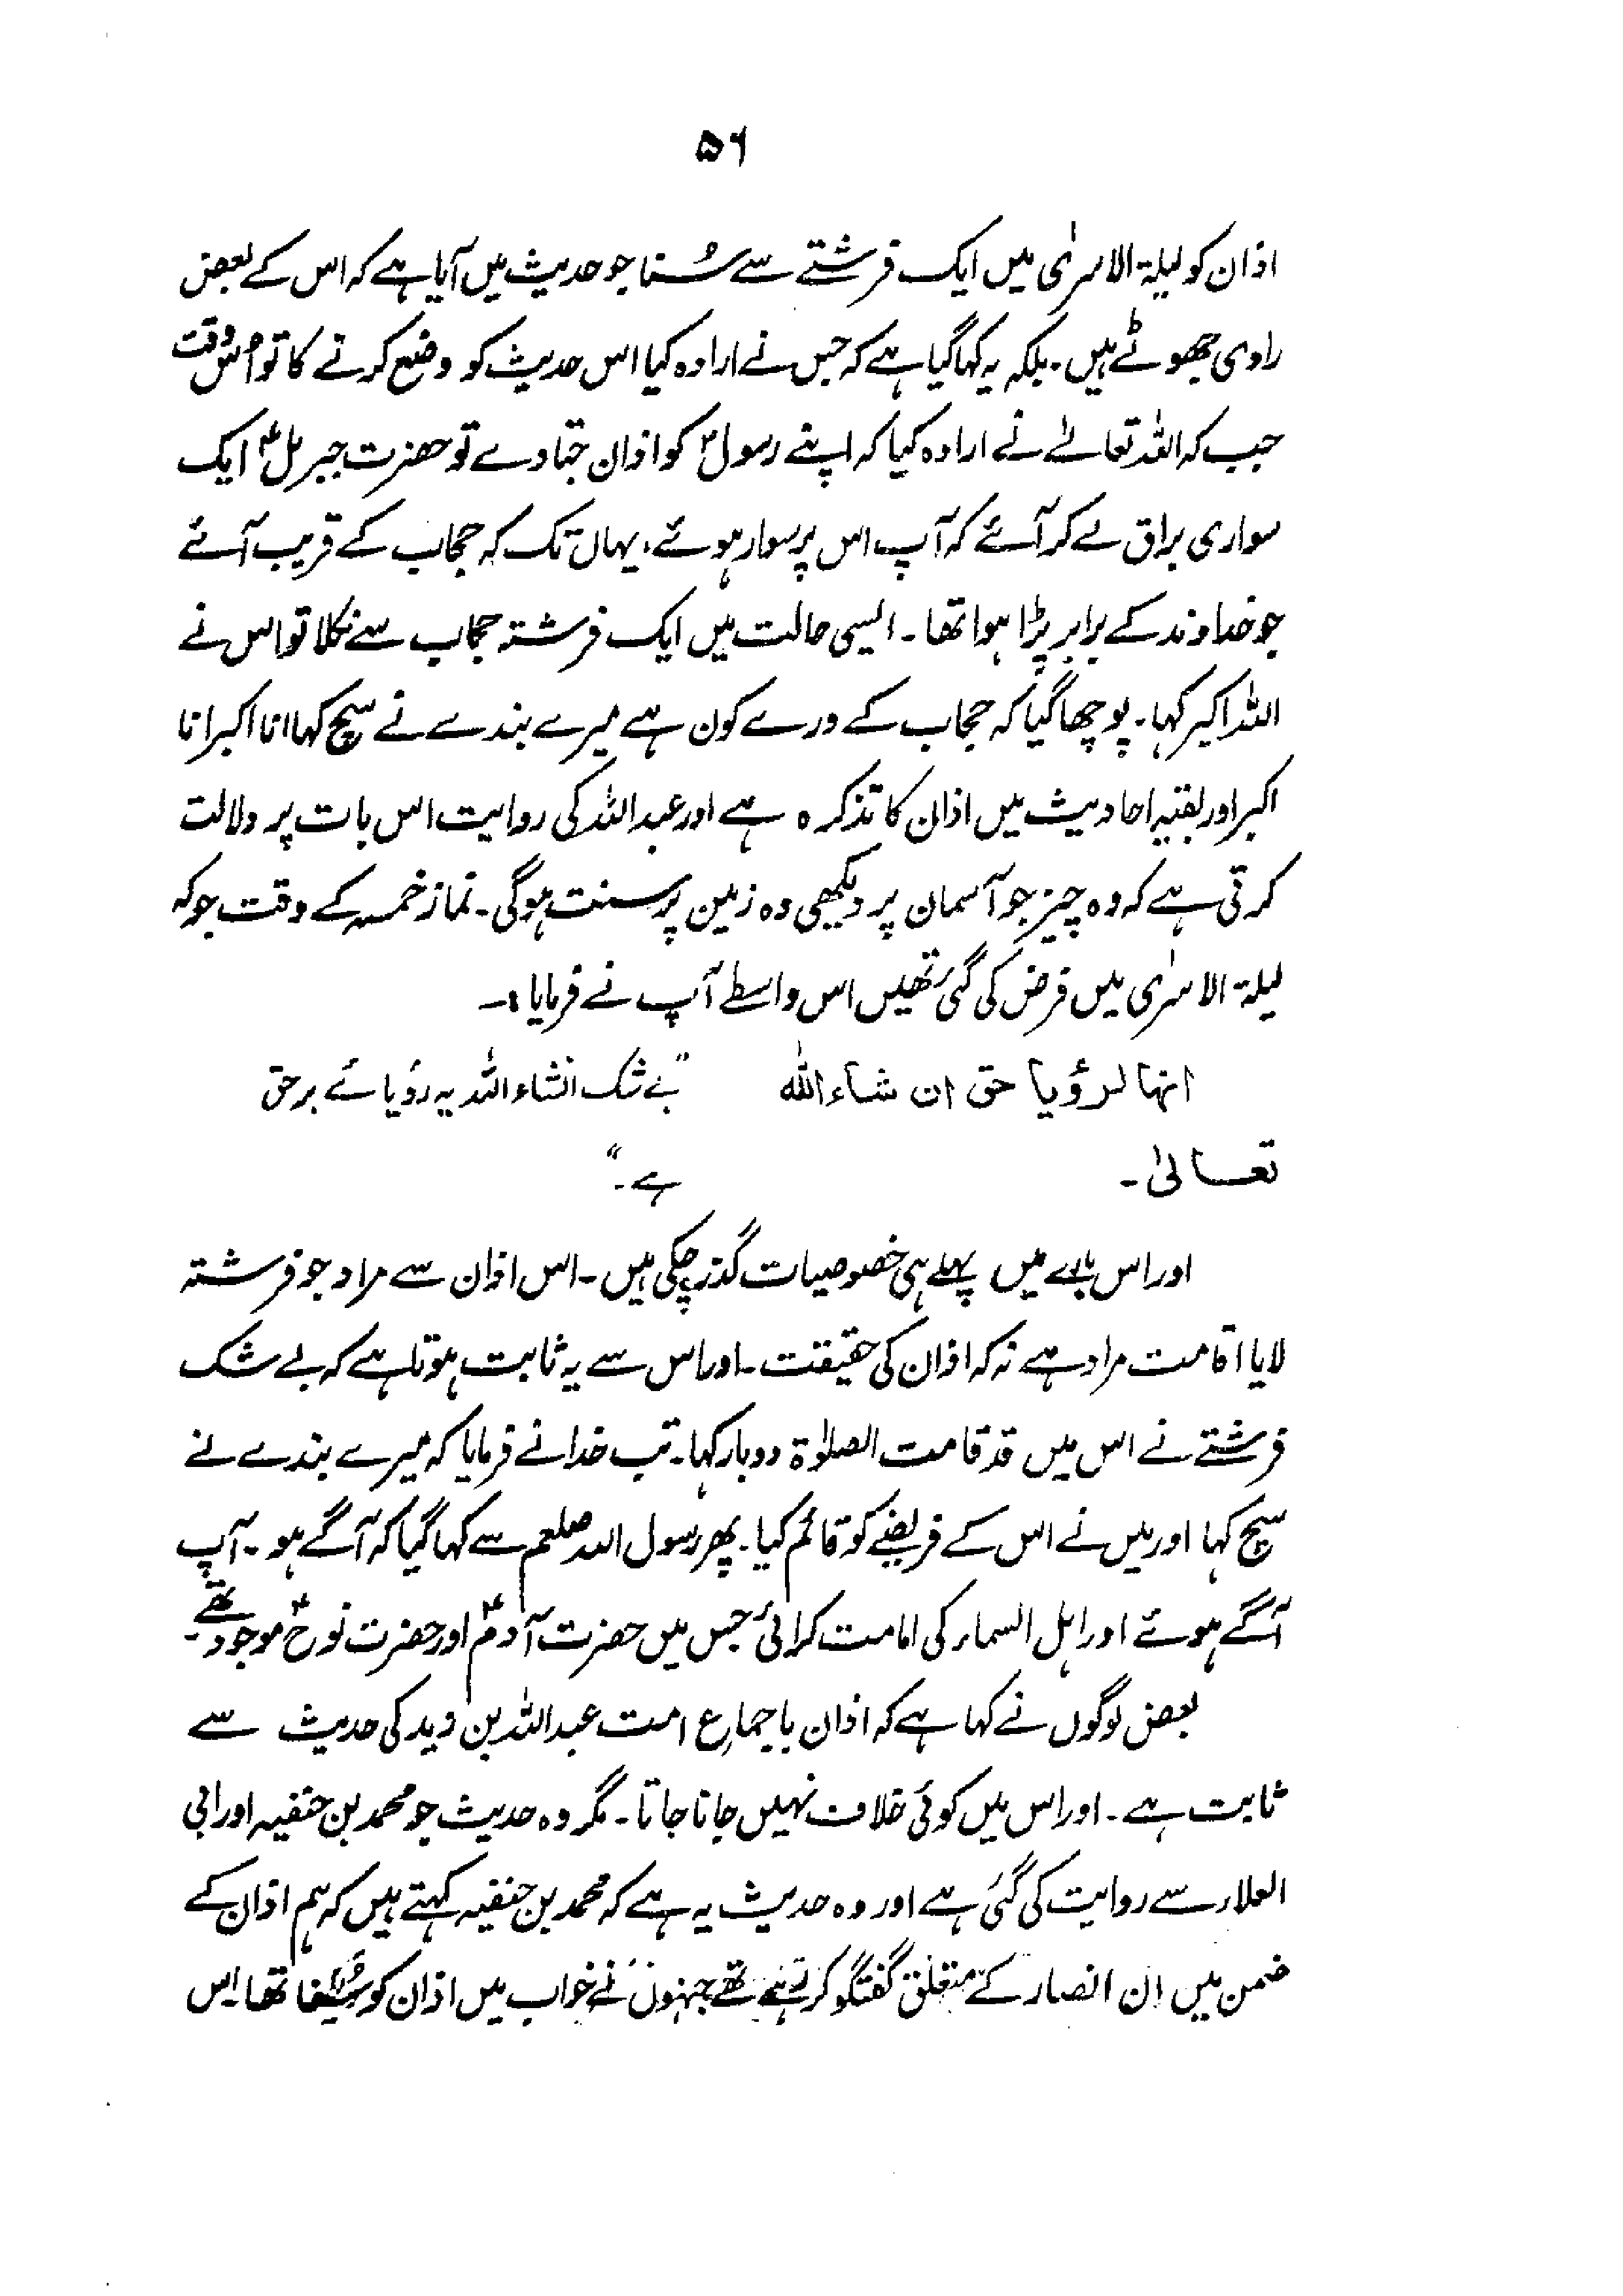 ۵۶
اذان کو لیلۃ الاسرٰی میں ایک فرشتے سے سُنا جو حدیث میں آیا ہے کہ اس کے بعض
راوی جھوٹے ہیں۔ بلکہ یہ کہا گیا ہے کہ جس نے ارادہ کیا اس حدیث کو وضع کرنے کا تو اُس وقت
جب کہ اللہ تعالےٰ نے ارادہ کیا کہ اپنے رسولؐ کو اذان جتا دے تو حضرت جبرلؑ ایک
سواری براق لے کر آئے کہ آپ اس پر سوار ہوئے، یہاں تک کہ حجاب کے قریب آئے
جو خداوند کے برابر پڑا ہوا تھا۔ ایسی حالت میں ایک فرشتہ حجاب سے نکلا تو اس نے
اللہ اکبر کہا۔ پوچھا گیا کہ حجاب کے ورے کون ہے میرے بندے نے سچ کہا انا اکبر انا
اکبر اور بقیہ احادیث میں اذان کا تذکرہ ہے اور عبداللہ کی روایت اس بات پر دلالت
کرتی ہے کہ وہ چیز جو آسمان پر دیکھی وہ زمین پر سنت ہوگی۔ نماز خمسہ کے وقت جو کہ
لیلۃ الاسرٰی میں فرض کی گئی تھیں اس واسطے آپ نے فرمایا :۔
انہا لرؤیا حق ان شاء اللہ "بے شک انشاء اللہ یہ رؤیائے برحق
تعالیٰ۔ ہے۔"
اور اس بارے میں پہلے ہی خصوصیات گذر چکی ہیں۔ اس اذان سے مراد جو فرشتہ
لایا اقامت مراد ہے نہ کہ اذان کی حقیقت۔ اور اس سے یہ ثابت ہوتا ہے کہ بے شک
فرشتے نے اس میں قد قامت الصلوٰۃ دوبار کہا۔ تب خدا نے فرمایا کہ میرے بندے نے
سچ کہا اور میں نے اس کے فریضے کو قائم کیا۔ پھر رسول اللہ صلعم سے کہا گیا کہ آگے ہو۔ آپ
آگے ہوئے اور اہل السماء کی امامت کرائی جس میں حضرت آدمؑ اور حضرت نوحؑ موجود تھے۔
بعض لوگوں نے کہا ہے کہ اذان باجماعِ امت عبداللہ بن زید کی حدیث سے
ثابت ہے۔ اور اس میں کوئی خلاف نہیں جانا جاتا۔ مگر وہ حدیث جو محمد بن حنفیہ اور ابی
العلاء سے روایت کی گئی ہے اور وہ حدیث یہ ہے کہ محمد بن حنفیہ کہتے ہیں کہ ہم اذان کے
ضمن میں ان انصار کے متعلق گفتگو کر رہے تھے جنہوں نے خواب میں اذان کو سُنا تھا اس